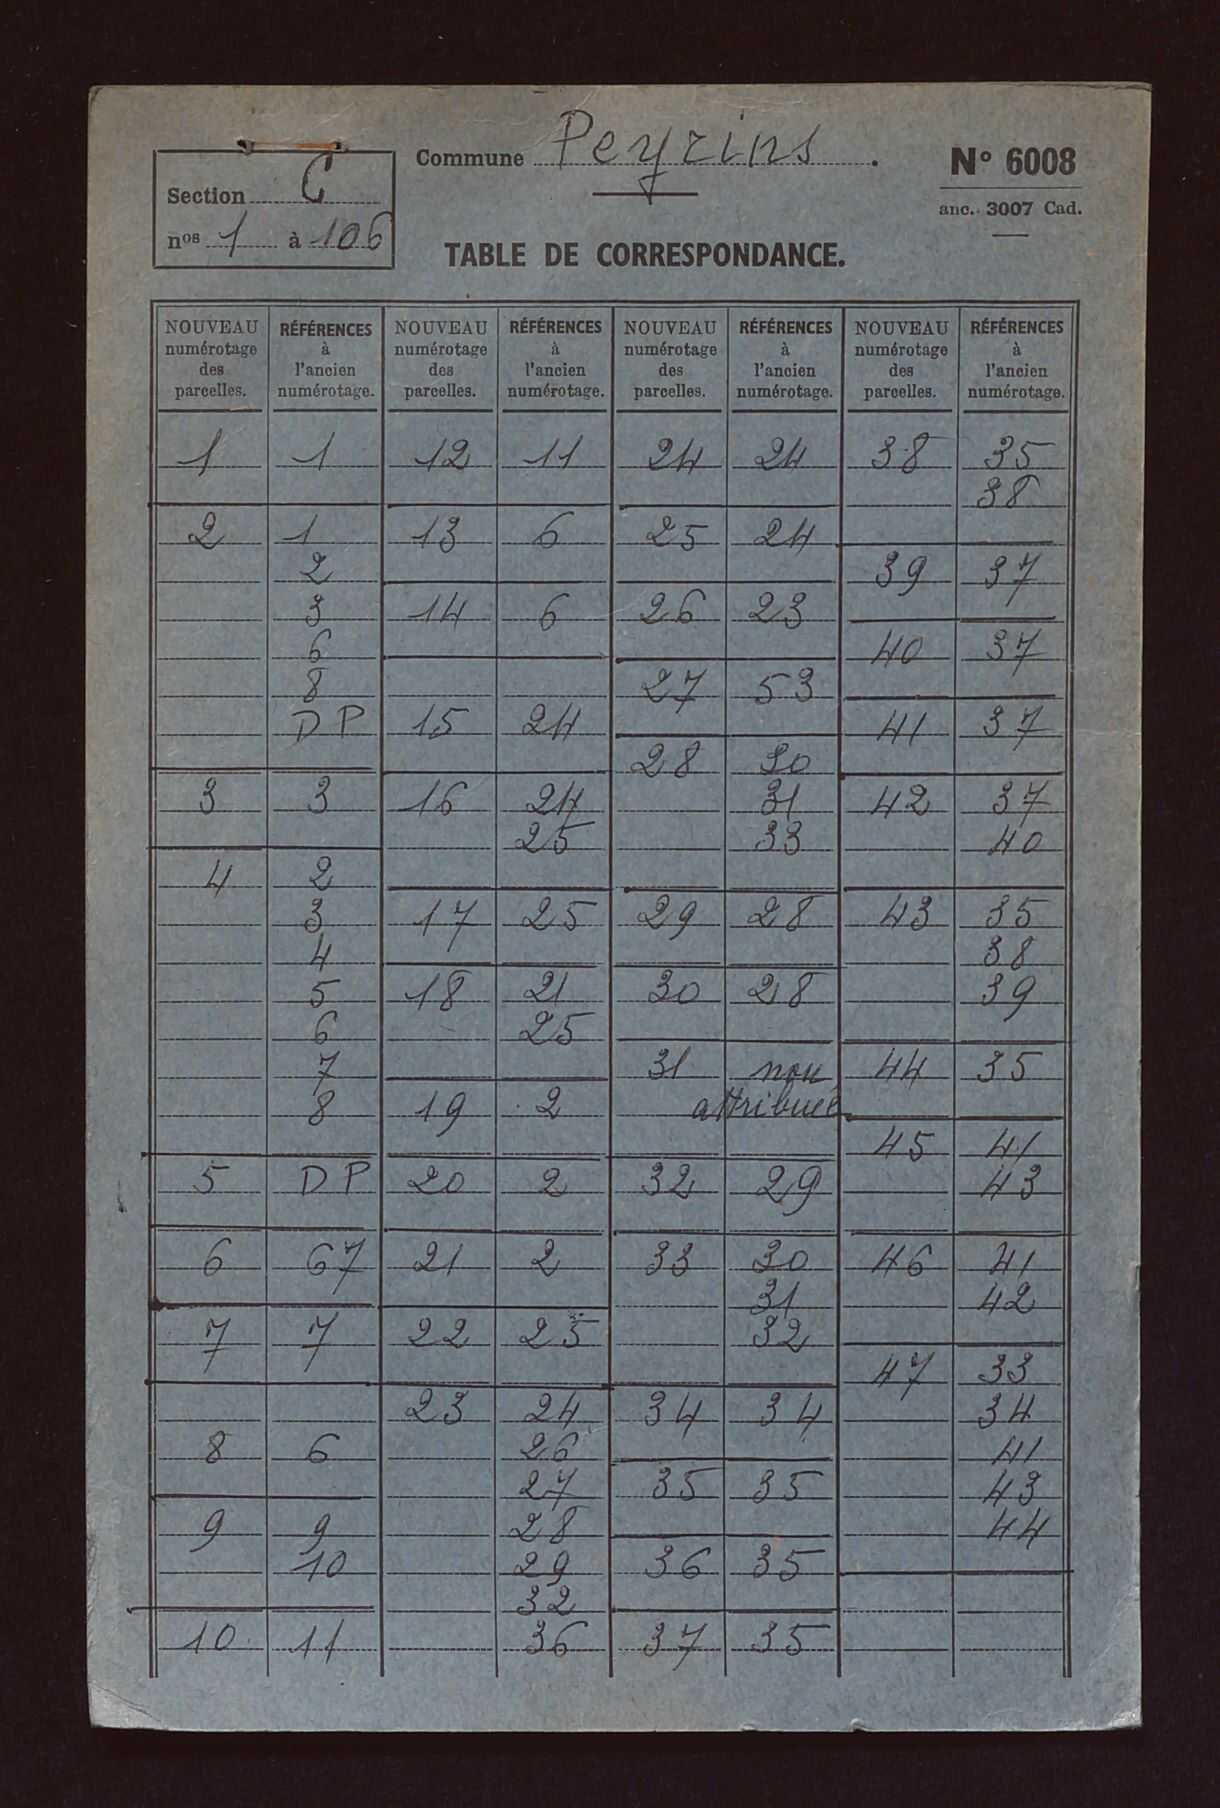 Commune Peyrins.
N° 6008
anc. 3007 Cad.
Section C
nos 1 à 106
TABLE DE CORRESPONDANCE.
NOUVEAU numérotage des parcelles. RÉFÉRENCES à l'ancien numérotage.
1 1
2 1
2
3
6
8
DP
3 3
4 2
3
4
5
6
7
8
5 DP
6 67
7 7
8 6
9 9
10
10 11
NOUVEAU numérotage des parcelles. RÉFÉRENCES à l'ancien numérotage.
12 11
13 6
14 6
15 24
16 24
25
17 25
18 21
25
19 2
20 2
21 2
22 25
23 24
26
27
28
29
32
36
NOUVEAU numérotage des parcelles. RÉFÉRENCES à l'ancien numérotage.
24 24
25 24
26 23
27 53
28 30
31
33
29 28
30 28
31 non
attribuée
32 29
33 30
31
32
34 34
35 35
36 35
37 35
NOUVEAU numérotage des parcelles. RÉFÉRENCES à l'ancien numérotage.
38 35
38
39 37
40 37
41 37
42 37
40
43 35
38
39
44 35
45 41
43
46 41
42
47 33
34
41
43
44